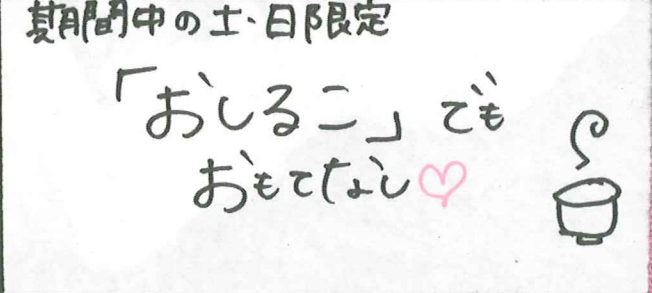 期間中の土・日限定
「おしるこ」でも
おもてなし♡